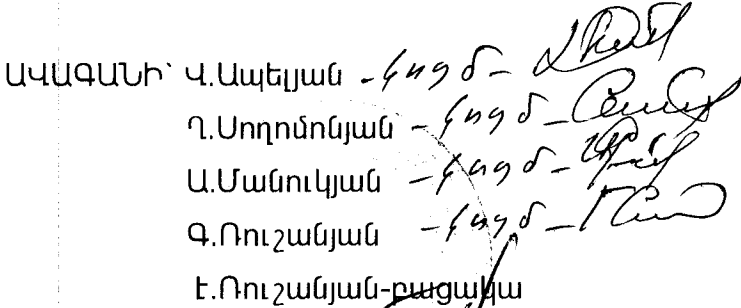 ԱՎԱԳԱՆԻ՝ Վ.Ապելյան - կողմ -
Ղ.Սողոմոնյան - կողմ -
Ա.Մանուկյան - կողմ -
Գ.Ռուշանյան - կողմ -
Է.Ռուշանյան-բացակա